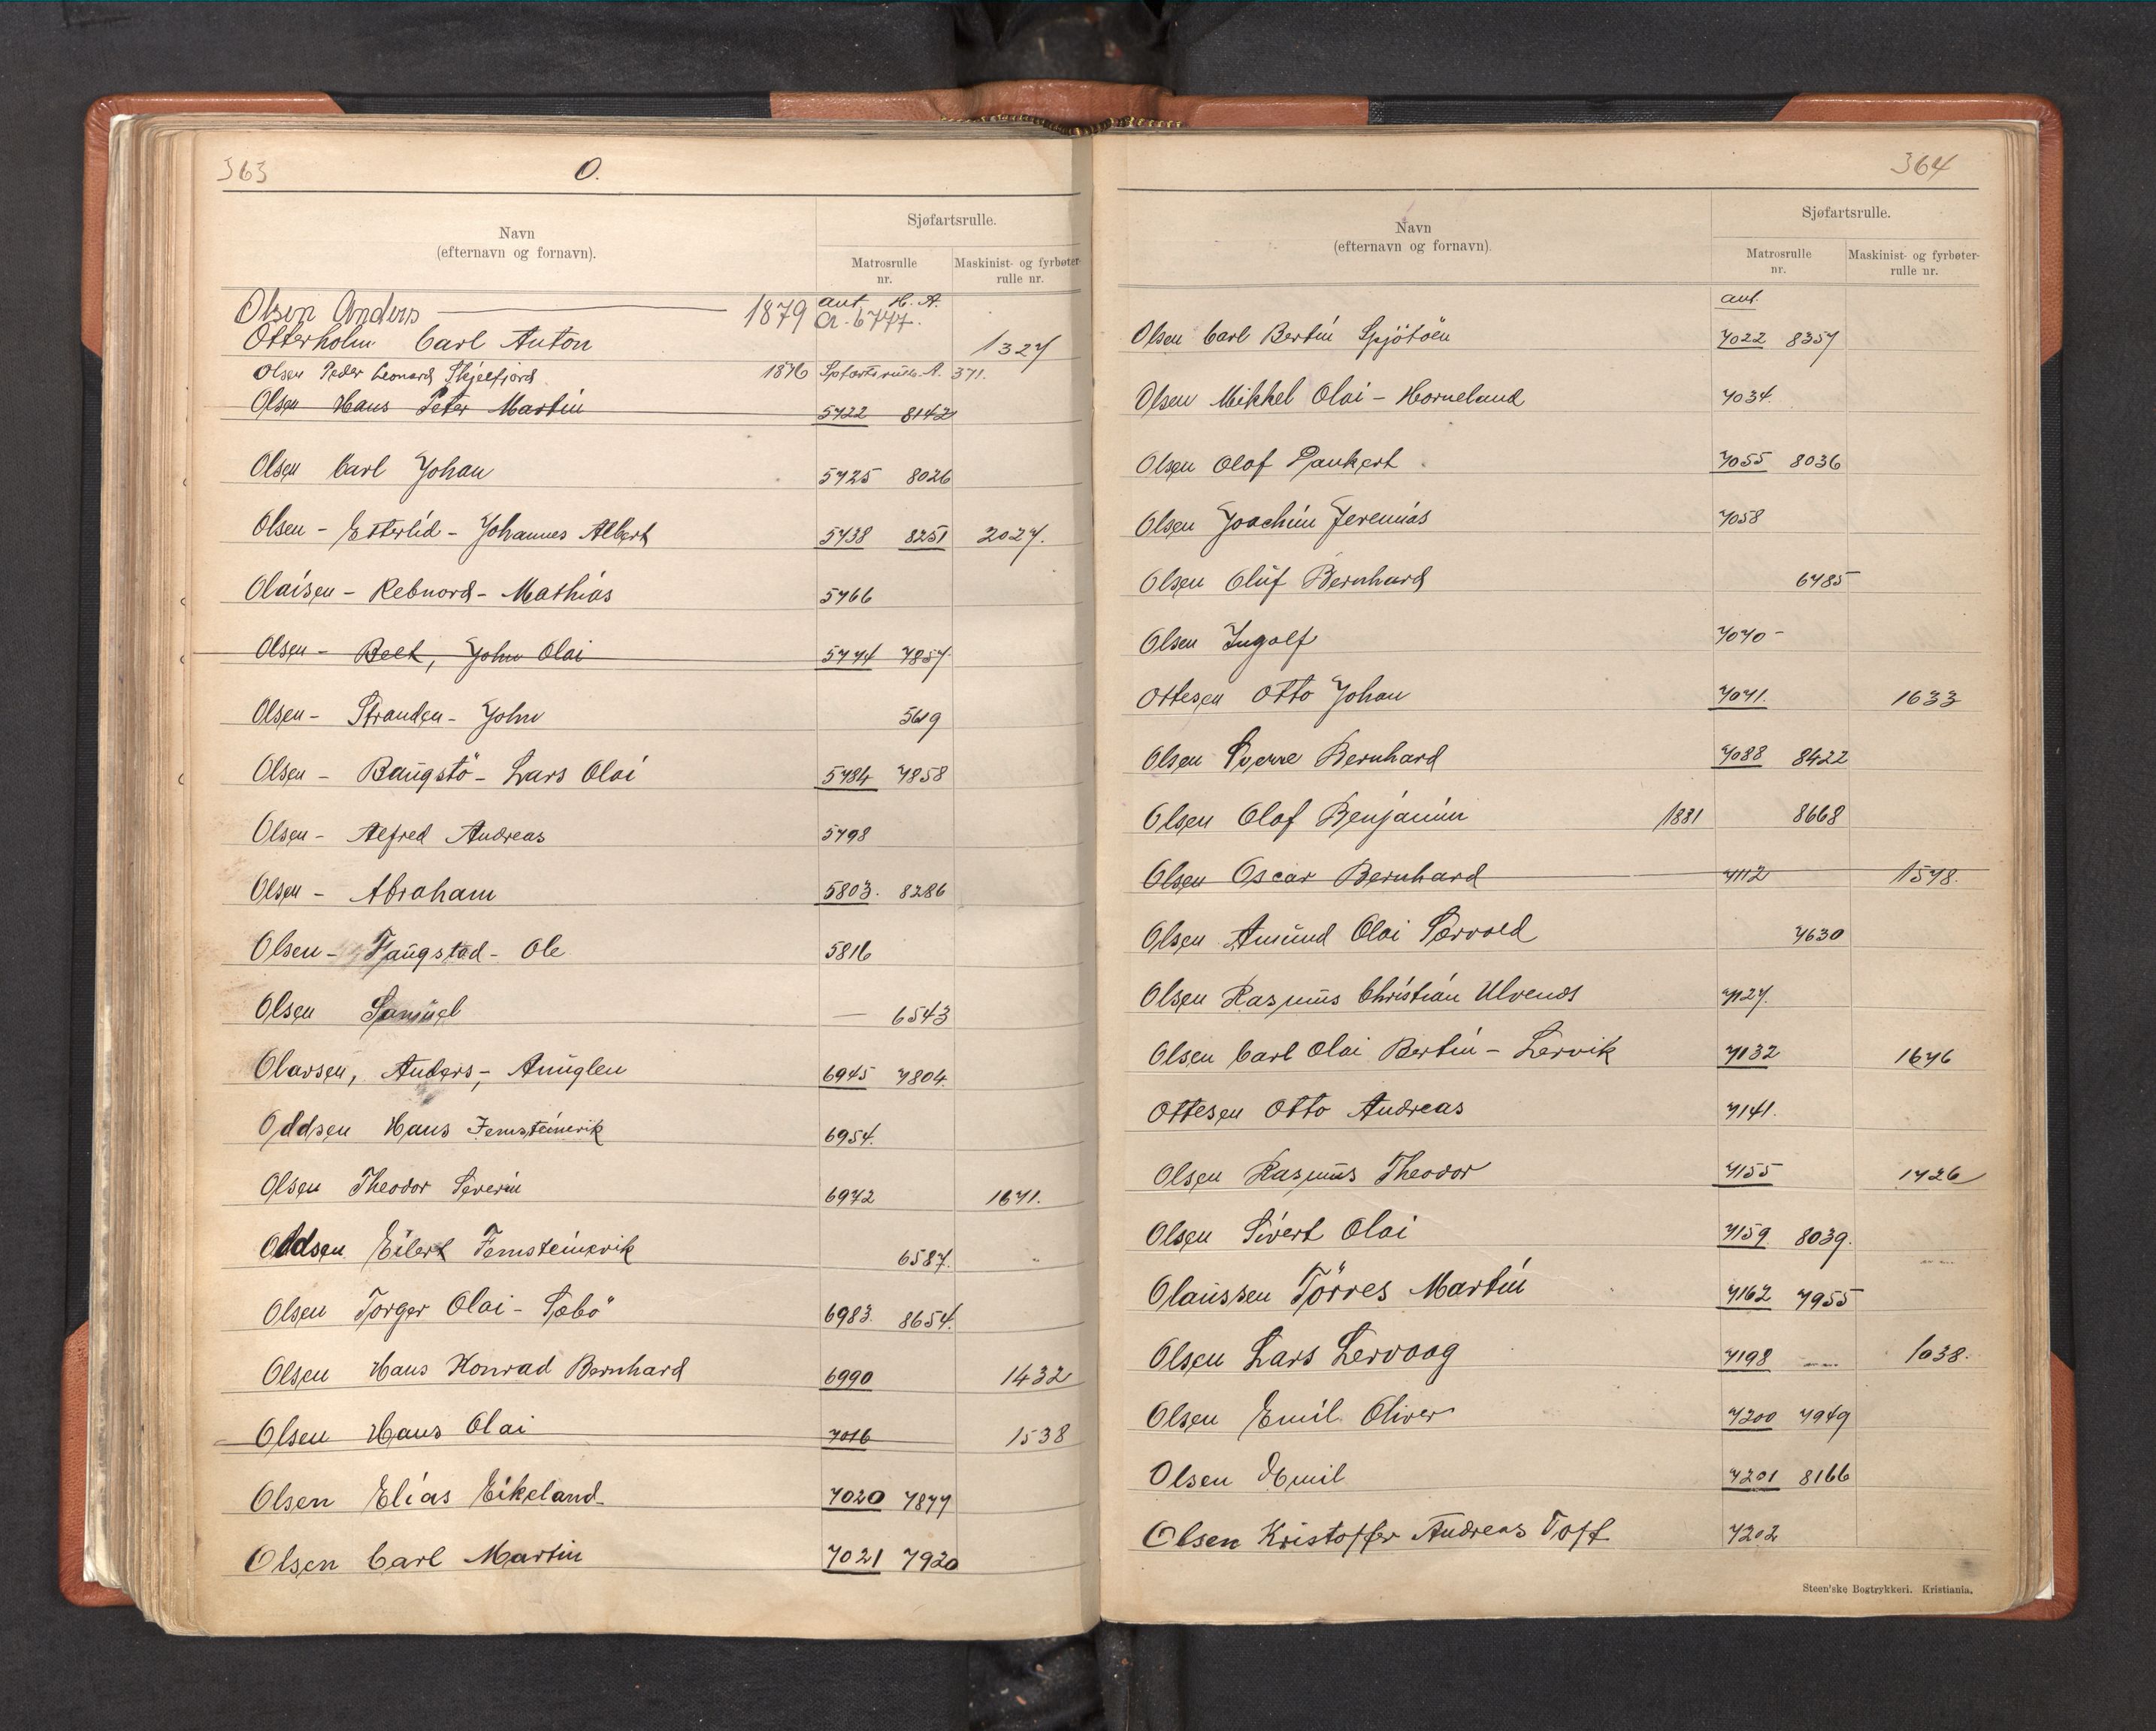 363
O.
Navn
(efternavn og fornavn).
Sjøfartsrulle.
Matrosrulle
nr.
Maskinist- og fyrbøter-
rulle nr.
Olsen Anders 1879 ant. H. A.
A. 6777.
Otterholm Carl Anton 1327
Olsen Peder Leonard Skjelfjord 1876 A. 371.
Olsen Hans Peter Martin 5722 8142
Olsen Carl Johan 5725 8026
Olsen - Etterlid - Johannes Albert 5738 8251 2027.
Olaisen - Rebnord - Mathias 5766
Olsen - Beek, John Olai 5774 7857
Olsen - Stranden - John
Olsen - Baugstö - Lars Olai 5784 7858
Olsen - Alfred Andreas 5798
Olsen - Abraham 5803. 8286
Olsen - Faugstad - Ole 5816
Olsen Samuel — 6543
Olavsen, Anders -, Anuglen 6945 7804.
Oddsen Hans Femsteinevik 6954.
Olsen Theodor Severin 6972 1671.
Oddsen Eilert Femsteinevik 6587.
Olsen Torger Olai - Sæbö 6983. 8654.
Olsen Hans Konrad Bernhard 6990 1432
Olsen Hans Olai 7016 1538
Olsen Elias Eikeland 7020 7877
Olsen Carl Martin 7021 7920
364
Navn
(efternavn og fornavn).
Sjøfartsrulle.
Matrosrulle
nr.
Maskinist- og fyrbøter-
rulle nr.
ant.
Olsen Carl Bertin Spjötöen 7022 8357
Olsen Mikkel Olai - Horneland 7034.
Olsen Olaf Pankert 7055 8036
Olsen Joachim Jeremias 7058
Olsen Oluf Bernhard 6785
Olsen Ingolf 7070 -
Ottesen Otto Johan 7071. 1633
Olsen Sverre Bernhard 7088 8422
Olsen Olaf Benjamin 1881 8668
Olsen Oscar Bernhard 7112 1578.
Olsen Amund Olai Sørvold 7630
Olsen Rasmus Christian Ulvenes 7127.
Olsen Carl Olai Bertin - Lervik 7132 1676
Ottesen Otto Andreas 7141.
Olsen Rasmus Theodor 7155 1726
Olsen Sivert Olai 7159 8039.
Olaussen Törres Martin 7162 7955
Olsen Lars Lervaag 7198 1038.
Olsen Emil Oliver 7200 7949
Olsen Emil 7201 8166
Olsen Kristoffer Andreas Toft 7202
Steen'ske Bogtrykkeri. Kristiania.